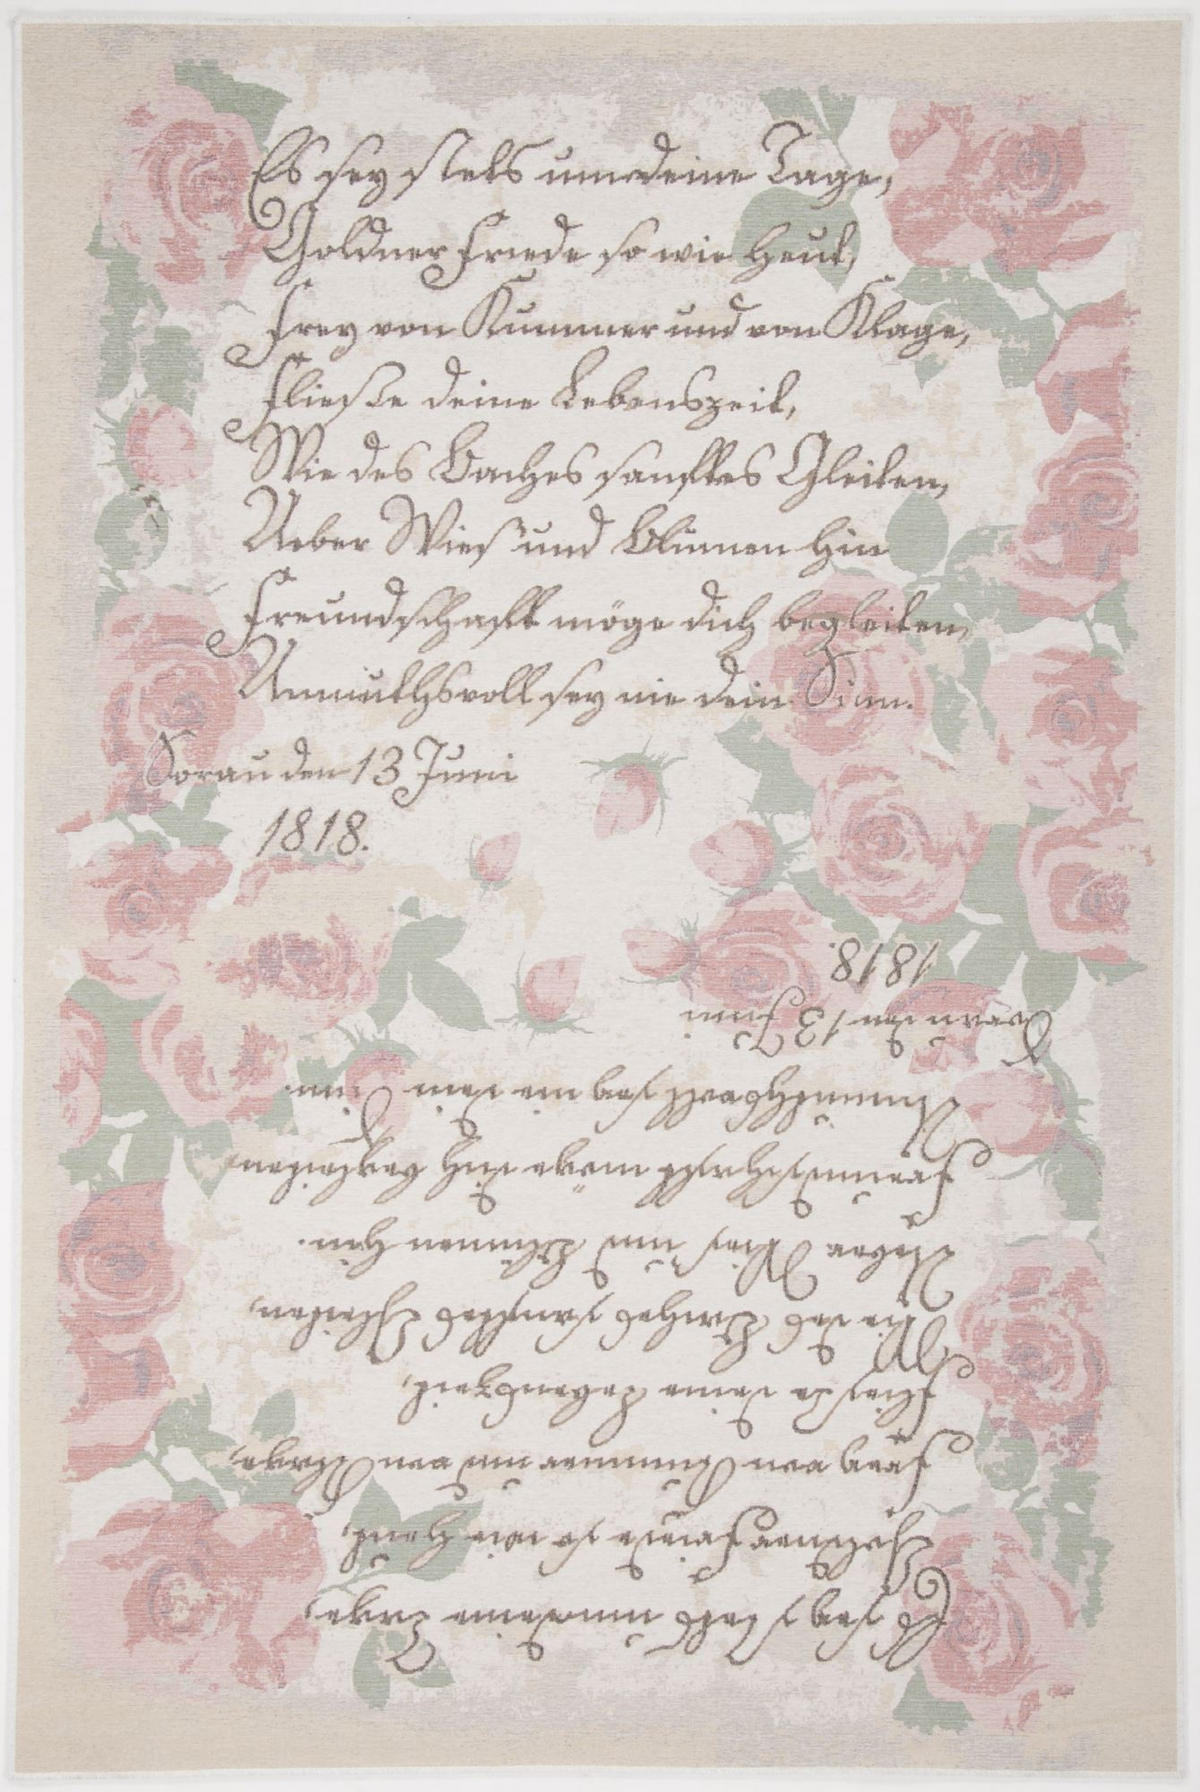 Es sey stets um deine Tage,
Goldner Friede so wie heut,
Frey von Kummer und von Klage,
Fließe deine Lebenszeit,
Wie des Baches sanftes Gleiten,
Ueber Wies' und Blumen hin
Freundschaft möge dich begleiten,
Unmuthsvoll sey nie dein Sinn.
Sorau den 13 Juni
1818.
Es sey stets um deine Tage,
Goldner Friede so wie heut,
Frey von Kummer und von Klage,
Fließe deine Lebenszeit,
Wie des Baches sanftes Gleiten,
Ueber Wies' und Blumen hin.
Freundschaft möge dich begleiten
Unmuthsvoll sey nie dein Sinn.
Sorau den 13 Juni
1818.